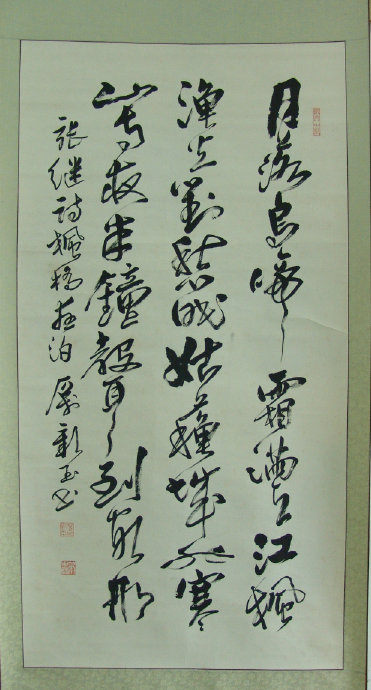 月落烏啼霜滿天江楓
漁火對愁眠姑蘇城外寒
山寺夜半鐘聲到客船
張继诗楓橋夜泊